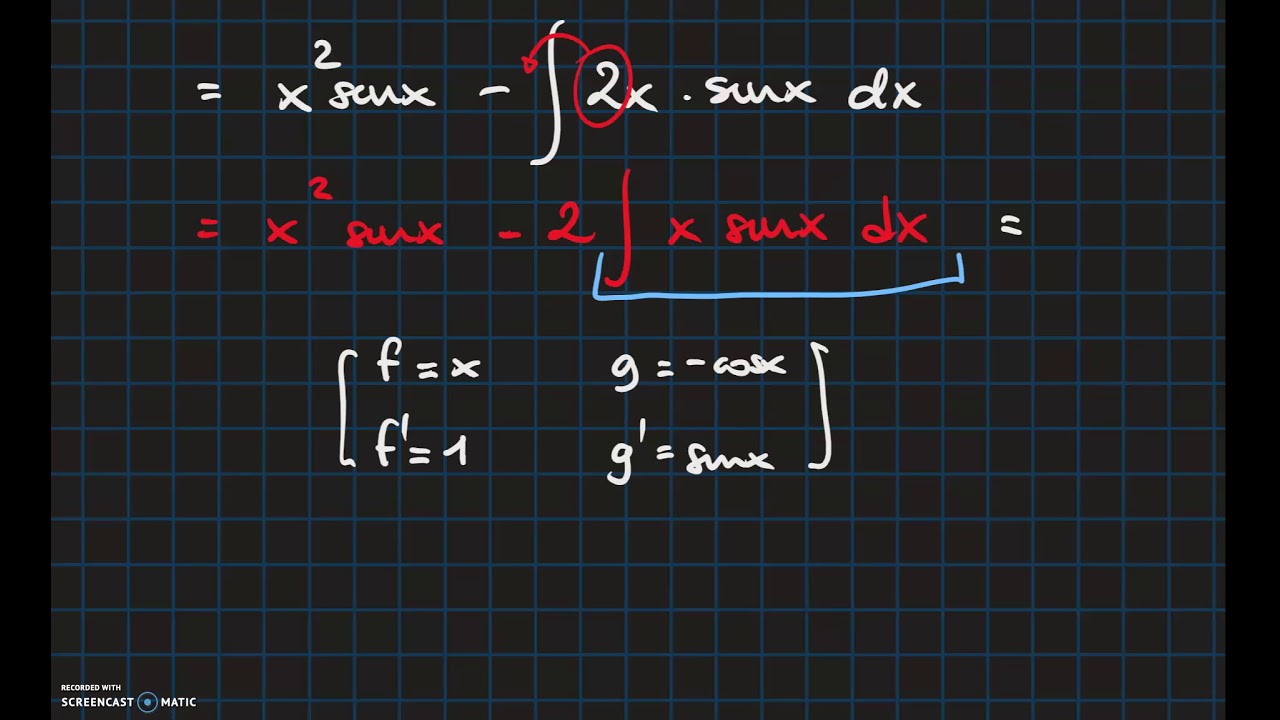 = x² sinx - ∫ 2x . sinx dx
= x² sinx - 2 ∫ x sinx dx =
f = x g = -cosx
f' = 1 g' = sinx
RECORDED WITH
SCREENCAST MATIC